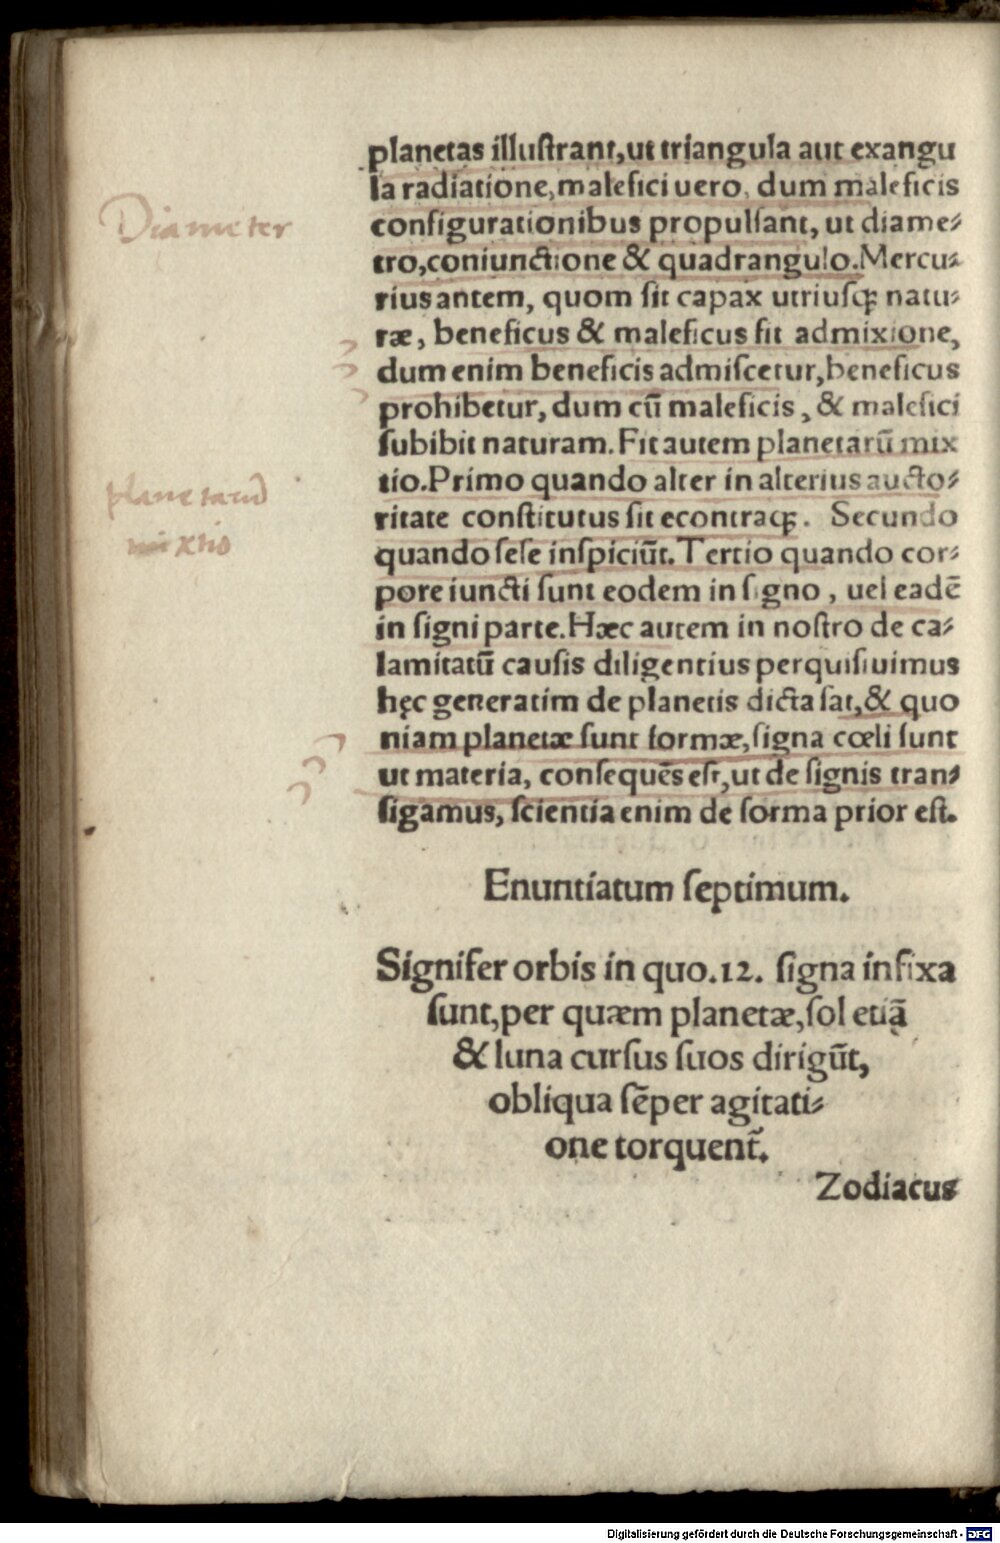 planetas illuſtrant,ut triangula aut exangu
la radiatione,malefici uero, dum maleficis
configurationibus propulſant, ut diame-
Diameter
tro,coniunctione & quadrangulo.Mercu-
rius antem, quom ſit capax utriuſqꝫ natu-
ræ, beneficus & maleficus fit admixione,
dum enim beneficis admiſcetur,beneficus
prohibetur, dum cū maleficis, & malefici
ſubibit naturam.Fit autem planetarū mix
tio.Primo quando alter in alterius aucto-
planetarū
ritate conſtitutus ſit econtraqꝫ. Secundo
mixtio
quando ſeſe inſpiciūt.Tertio quando cor-
pore iuncti ſunt eodem in signo, uel eadē
in ſigni parte.Hæc autem in noſtro de ca-
lamitatū cauſis diligentius perquiſiuimus
hęc generatim de planetis dicta ſat,& quo
niam planetæ ſunt formæ,ſigna cœli ſunt
ut materia, conſequēs eſt,ut de ſignis tran-
ſigamus, ſcientia enim de forma prior eſt.
Enuntiatum ſeptimum.
Signifer orbis in quo.12. ſigna infixa
ſunt,per quæm planetæ,ſol etiā
& luna curſus ſuos dirigūt,
obliqua ſēper agitati-
one torquent᷑.
Zodiacus
Digitalisierung gefördert durch die Deutsche Forschungsgemeinschaft - DFG